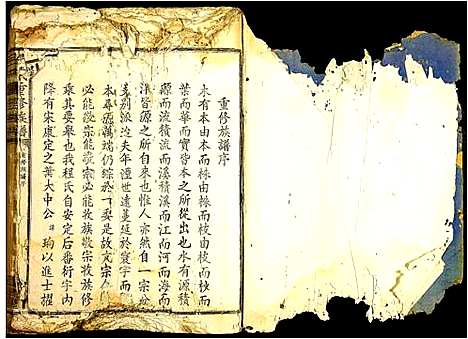 重修族譜序
木有本由本而株由株而枝由枝而
葉而華而實皆本之所從出也水有源積
源而流積流而溪積溪而江而河而海而
洋皆源之所自來也惟人亦然自一宗分
派別派迨夫年湮世遠蔓延於寰宇而
本尋萬端仍綜於一要是故文宗
必能敬宗能敬宗必能收族敬宗收族修
乘其要舉也我程氏自安定后番衍宇内
降有宋康定之黃大中公諱珦以進士擢
重修族譜
重修族譜序